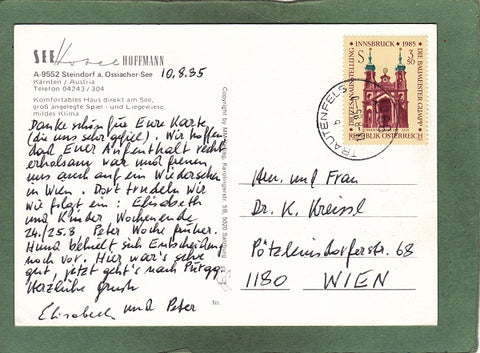 SEE Hotel HOFFMANN
A-9552 Steindorf a. Ossiacher-See
Kärnten / Austria
Telefon 04243 / 304
Komfortables Haus direkt am See,
groß angelegte Spiel- und Liegewiese,
mildes Klima
10.8.85
Danke schön für Eure Karte
(die uns sehr gefiel). Wir hoffen
daß Euer Aufenthalt recht
erholsam war und freuen
uns auch auf ein Wiedersehen
in Wien. Dort trudeln wir
wie folgt ein: Elisabeth
und Kinder Wochenende
24./25.8. Peter Woche früher.
behielt sich Entscheidung
noch vor. Hier war's sehr
gut, jetzt geht's nach Pürgg.
Herzliche Grüße
Elisabeth und Peter
Copyright by
5020 Salzburg
Nr.
INNSBRUCK 1985
DIE BAUMEISTER GUMPP
S 3.50
REPUBLIK ÖSTERREICH
TRAUTENFELS
Herrn und Frau
Dr. K. Kreissl
Pötzleinsdorferstr. 68
1180 WIEN